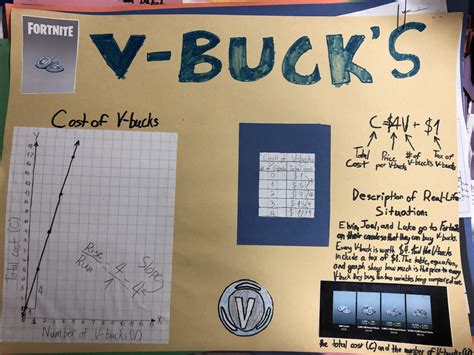 FORTNITE
V-BUCK'S
Cost of V-bucks
Total cost (C)
Number of V-bucks (V)
Rise
Run
4
1
= 4
Slope
Cost of V-Bucks
C=$4V + $1
Total
Cost
Price
per V-buck
# of
V-bucks
Tax of
V-bucks
Description of Real-Life
Situation:
Elvin, Joel, and Luke go to Fortnite
on their consoles so that they can buy V-bucks.
Every V-buck is worth $4. But the V-bucks
include a tax of $1. The table, equation,
and graph show how much is the price to every
V-buck they buy. The two variables being compared are
the total cost (C) and the number of V-bucks
V